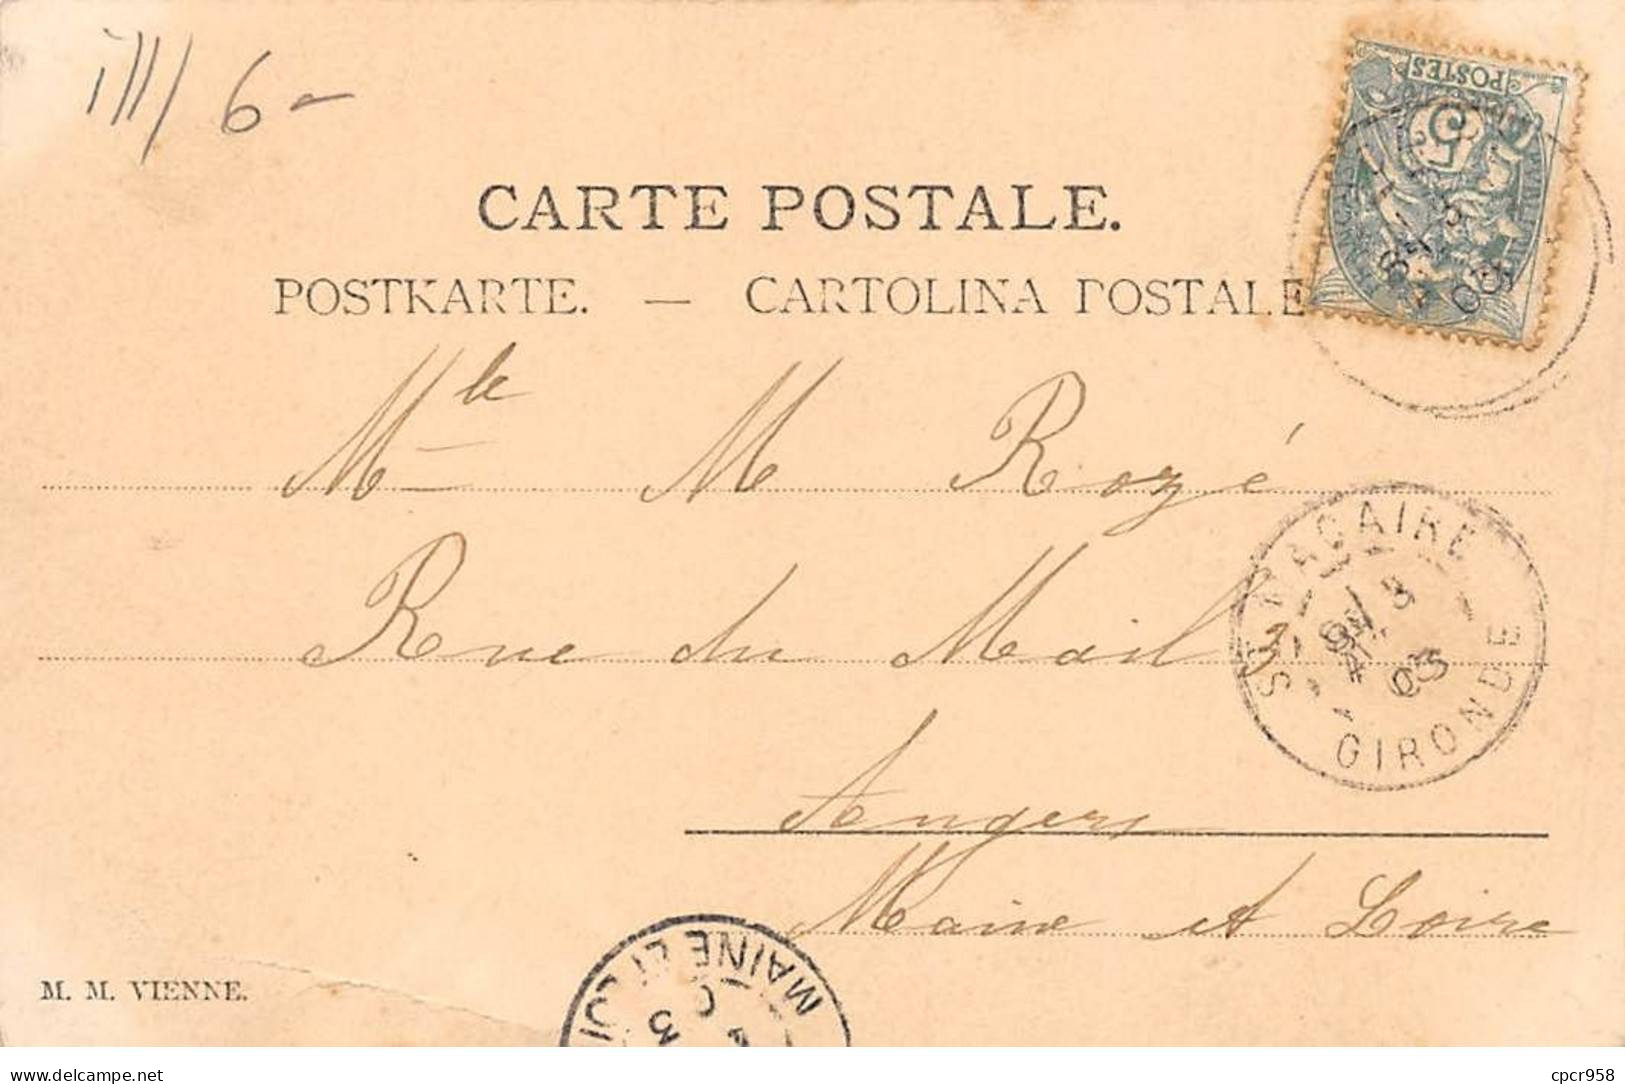 ill/6-
POSTES
5
CARTE POSTALE.
POSTKARTE. — CARTOLINA POSTALE
03
Mlle M Rozé
Rue du Mail 3
Angers
Maine et Loire
ST MACAIRE
3
03
GIRONDE
MAINE ET LOI
3
M. M. VIENNE.
delcampe.net
cpcr958